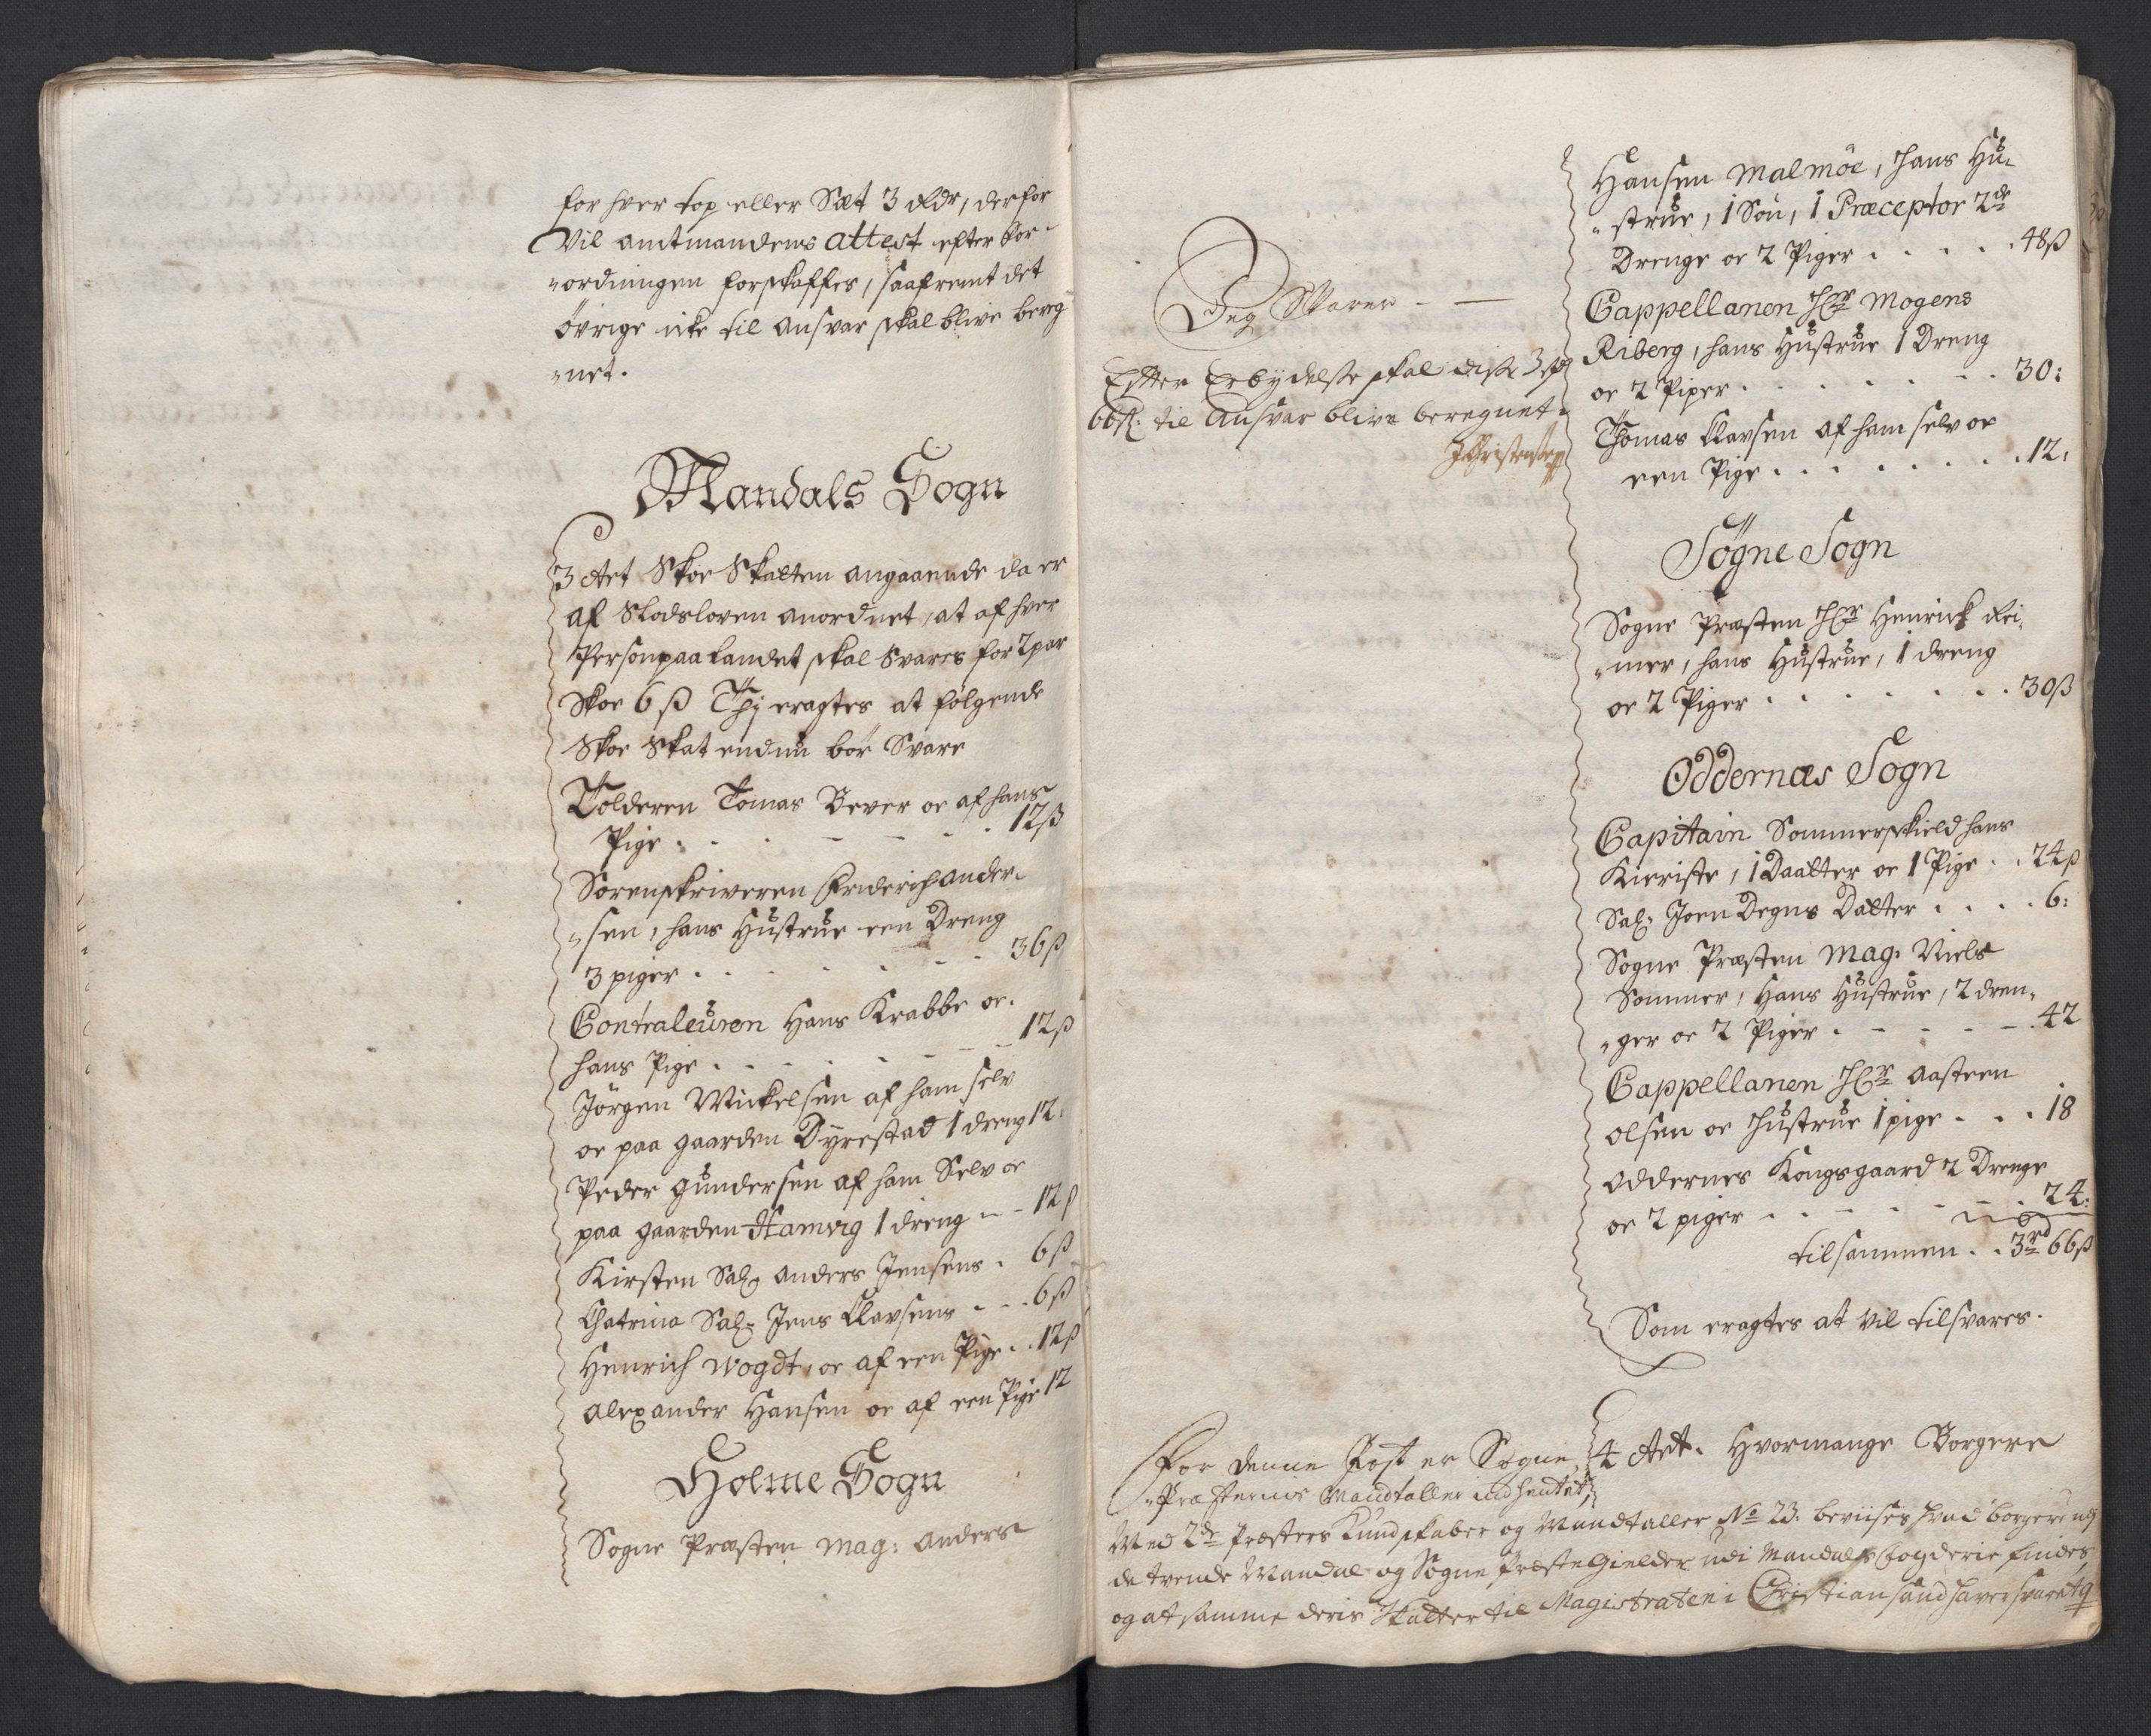 for hver top eller Sæt 3 Rdr, derfor
Vil amtmandens attest efter For-
ordningen forskaffes, saafremt det
öfrige icke til ansvar skal blive bereg
net.
Mandals Sogn
3 Art Skoe Skatten angaaende da er
af Slodsloven anordnet, at af hver
Person paa Landet skal Svares for 2 par
Skoe 6 ß Thj eragtes at følgende
Skoe Skat endnu bör Svare
Tolderen Tomas Bever oc af hans
Pige . . . . . 12ß
Sorenskriveren Friderich Ander-
sen, hans Hustrue een Dreng
3 piger . . . . . 36ß
Contraleuren Hans Krabbe oc
hans Pige . . . . . 12ß
Jörgen Mickelsen af ham selv
oc paa gaarden Dyrestad 1 dreng 12:
Peder Gundersen af ham Selv oc
paa gaarden Hamvig 1 dreng - - 12ß
Kirsten Sal: Anders Jensens . 6ß
Chatrina Sal: Jens Clavsens - - - 6ß
Henrich Vogdt, oc af een Pige . . 12ß
Alexander Hansen oc af een Pige 12
Holme Sogn
Sogne Præsten Mag: Anders
Hansen Malmöe, hans Hu-
strue, 1 Sön, 1 Præceptor 2de
Drenge oc 2 Piger . . . . . 48ß
Cappellanen Hr Mogens
Riberg, hans Hustrue 1 Dreng
oc 2 Piger . . . . . 30:
Thomas Clavsen af ham selv oc
een Pige . . . . . 12:
Jeg Svarer - —
Efter Erbydelse skal disse 3 rd
66ß. til Ansvar blive beregnet.
Sögne Sogn
Sogne Præsten Hr Henrick Rei-
mer, hans Hustrue, 1 dreng
oc 2 Piger . . . . . 30ß
Oddernæs Sogn
Capitain Sommerskield hans
Kieriste, 1 Daatter oc 1 Pige . . 24ß
Sal: Joen Degns Datter . . . . 6:
Sogne Præsten Mag: Niels
Sommer, Hans Hustrue, 2 dren-
ger oc 2 Piger . . . . . 42
Cappellanen Hr Aasteen
Olsen oc Hustrue 1 pige . . . 18
Oddernes Kongsgaard 2 Drenge
oc 2 piger . . . . . 24:
tilsammen . . 3 rd 66ß
Som eragtes at vil tilsvares.
4 Art. Hvormange Borgere
For denne Post er Sogne
Præsternis Mandtaller indhentet,
Med 2de Præsters Kundskaber og Mandtaller No 23. beviises hvad borgere udj
de tvende Mandal og Sögne Præstegielder udi Mandals fogderie findes,
og at samme deris Skatter til Magistraten i Christiansand haver svaret